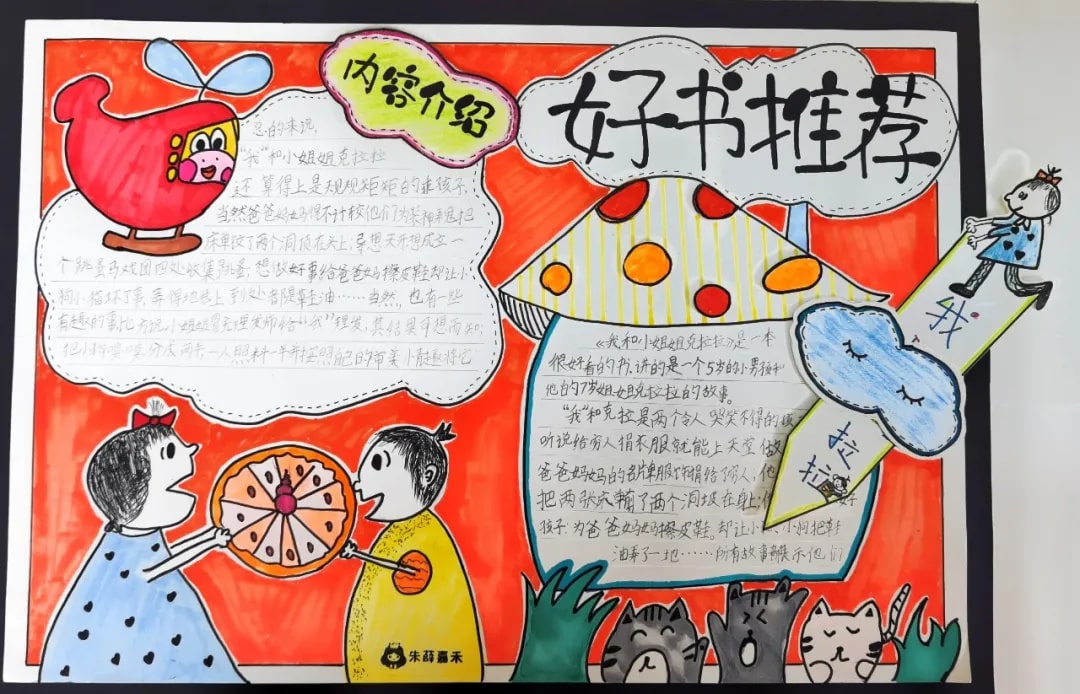 好书推荐
内容介绍
总的来说,
"我"和小姐姐克拉拉
还算得上是规规矩矩的乖孩子,
当然爸爸妈妈得不计较他们为
床单 了两个洞顶在头上; 想天 想成立一
个跳蚤马戏团四处收集跳蚤; 想做好事给爸爸妈 擦皮鞋却让小
狗小猫 到处都是鞋油……当然, 也有一些
有趣的事比方说小姐姐 理发师给"我"理发, 其结果可想而知;
一人照料一年
《我和小姐姐克拉拉》是一本
很好看的书,讲的是一个5岁的小男孩和
他的7岁姐姐克拉拉的故事。
"我"和克拉是两个令人哭笑不得的
听说给穷人捐衣服就能上天堂
爸爸妈妈的名牌服饰捐给了穷人,他
把两张床 了两个洞 在身上;
孩子为爸爸妈妈擦皮鞋,却让小 、小狗把鞋
油弄了一地……所有故事 示他们
我
拉
拉
朱薛嘉禾